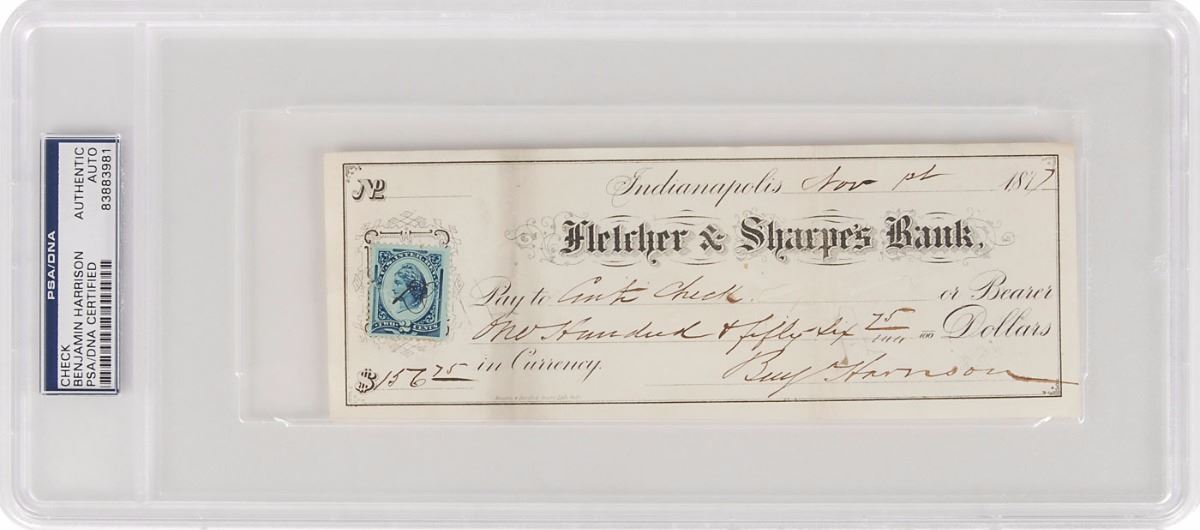 PSA/DNA
CHECK
BENJAMIN HARRISON
PSA/DNA CERTIFIED
AUTHENTIC
AUTO
83883981
No
Indianapolis Nov 1st 1877
Fletcher & Sharpe's Bank.
Pay to Check or Bearer
One Hundred & fifty-six 75/100 Dollars
$156 75 in Currency.
Benj Harrison
U.S. INTER. REV.
TWO 2 CENTS